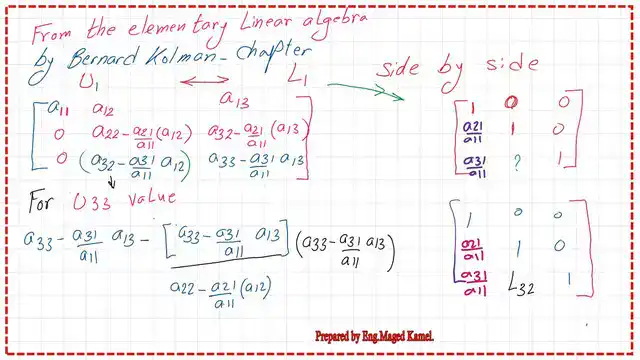 From the elementary Linear algebra
by Bernard Kolman - Chapter
U1 ↔ L1 side by side
a11 a12 a13
0 a22 - a21/a11 (a12) a32 - a21/a11 (a13)
0 (a32 - a31/a11 a12) a33 - a31/a11 a13
1 0 0
a21/a11 1 0
a31/a11 ? 1
For U33 value
a33 - a31/a11 a13 - [a33 - a31/a11 a13] / a22 - a21/a11 (a12) (a33 - a31/a11 a13)
1 0 0
a21/a11 1 0
a31/a11 L32 1
Prepared by Eng.Maged Kamel.